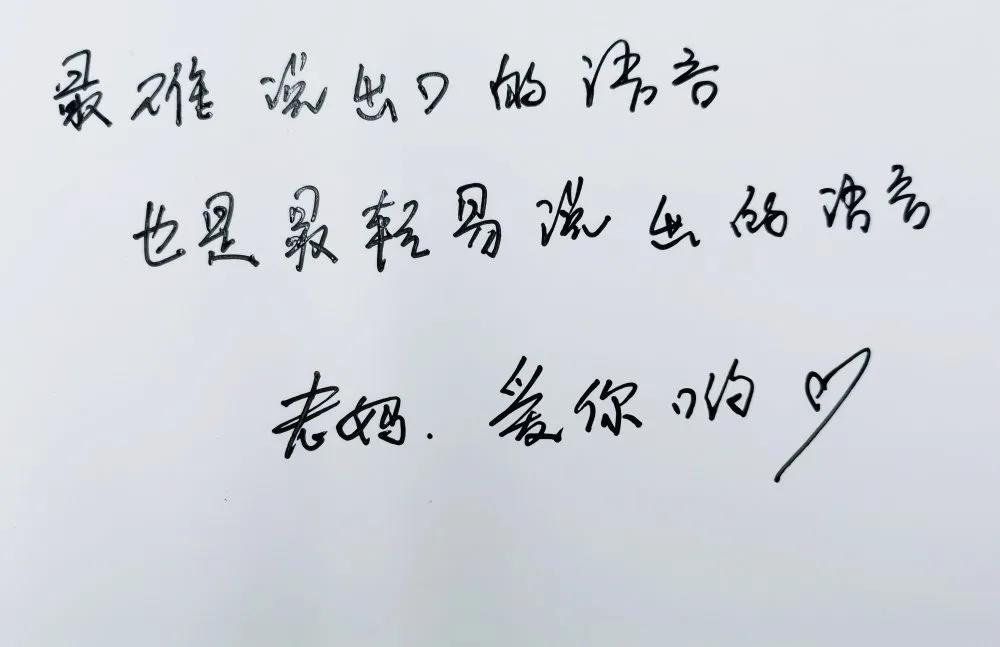 最难说出口的语音
也是最轻易说出的语音
老妈.爱你哟